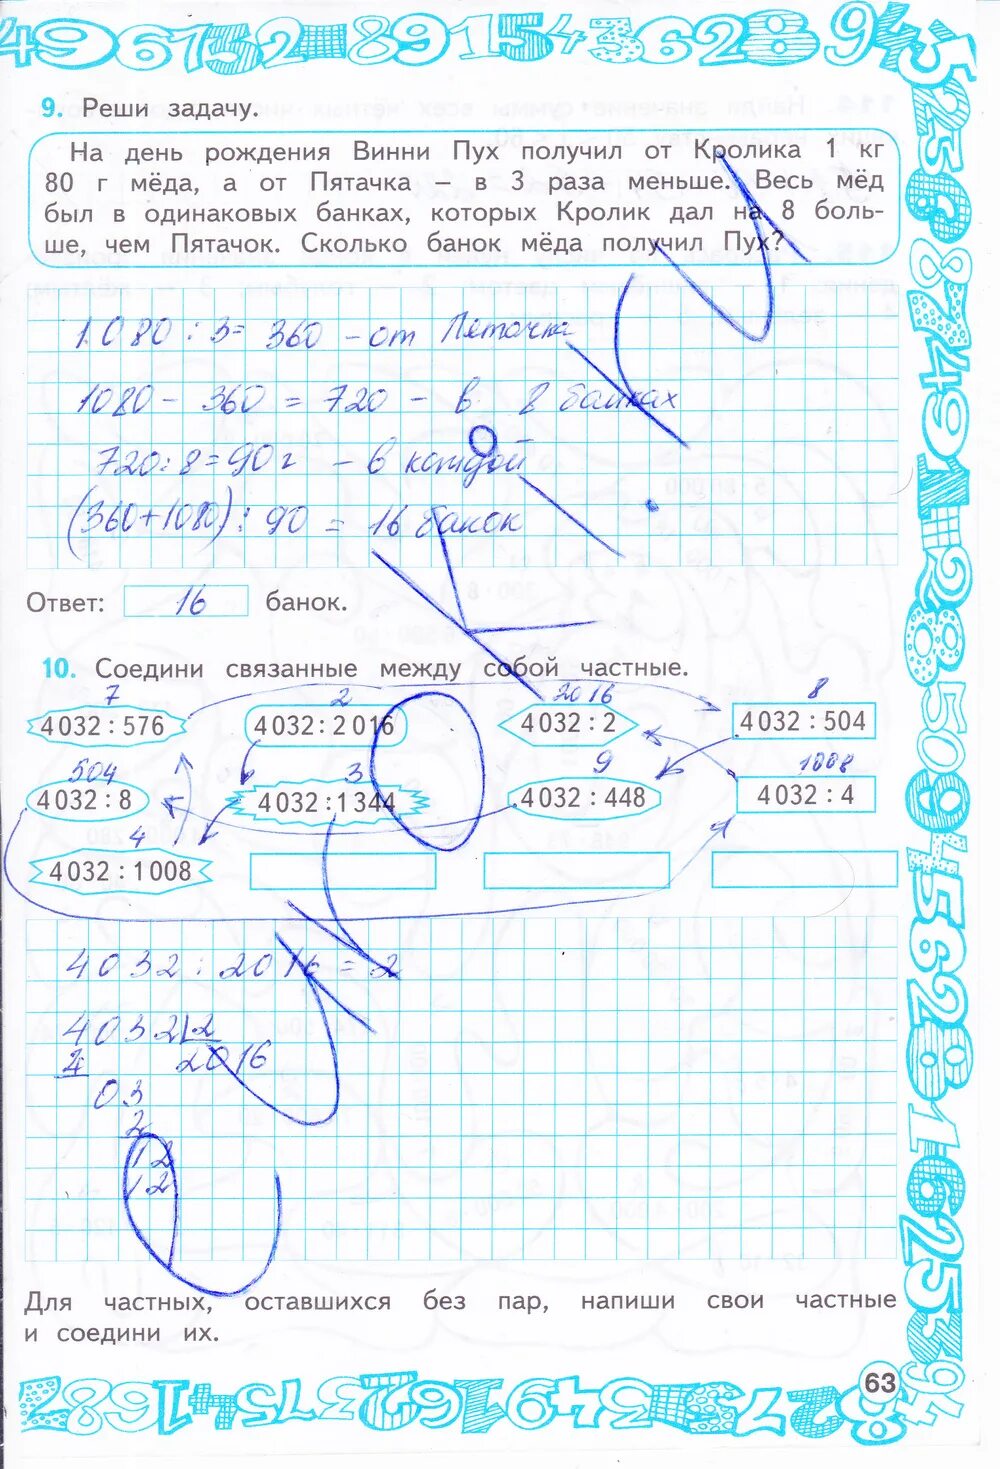 9. Реши задачу.
На день рождения Винни Пух получил от Кролика 1 кг
80 г мёда, а от Пятачка – в 3 раза меньше. Весь мёд
был в одинаковых банках, которых Кролик дал на 8 боль-
ше, чем Пятачок. Сколько банок мёда получил Пух?
1080 : 3 = 360 – от Пяточка
1080 – 360 = 720 – в 8 банках
720 : 8 = 90 г – в каждой
(360+1080) : 90 = 16 банок
Ответ: 16 банок.
10. Соедини связанные между собой частные.
7 2 2016 8
4032 : 576 4032 : 2016 4032 : 2 4032 : 504
504 3 9 1008
4032 : 8 4032 : 1344 4032 : 448 4032 : 4
4
4032 : 1008
4032 : 2016 = 2
4032 2
4 2016
03
2
12
12
Для частных, оставшихся без пар, напиши свои частные
и соедини их.
63